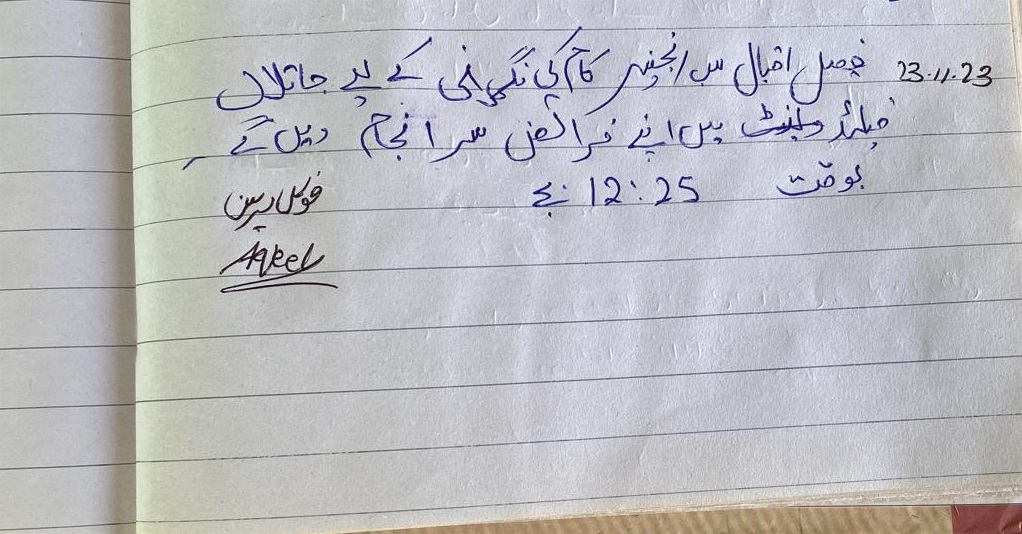 23.11.23 فیصل اقبال سب انجینیر کام کی نگرانی کے لیے جاتلاں
فیلڈ میں اپنے فرائض سر انجام دیں گے
بوقت 12:25 بجے
فوکل پرسن
Aqeel